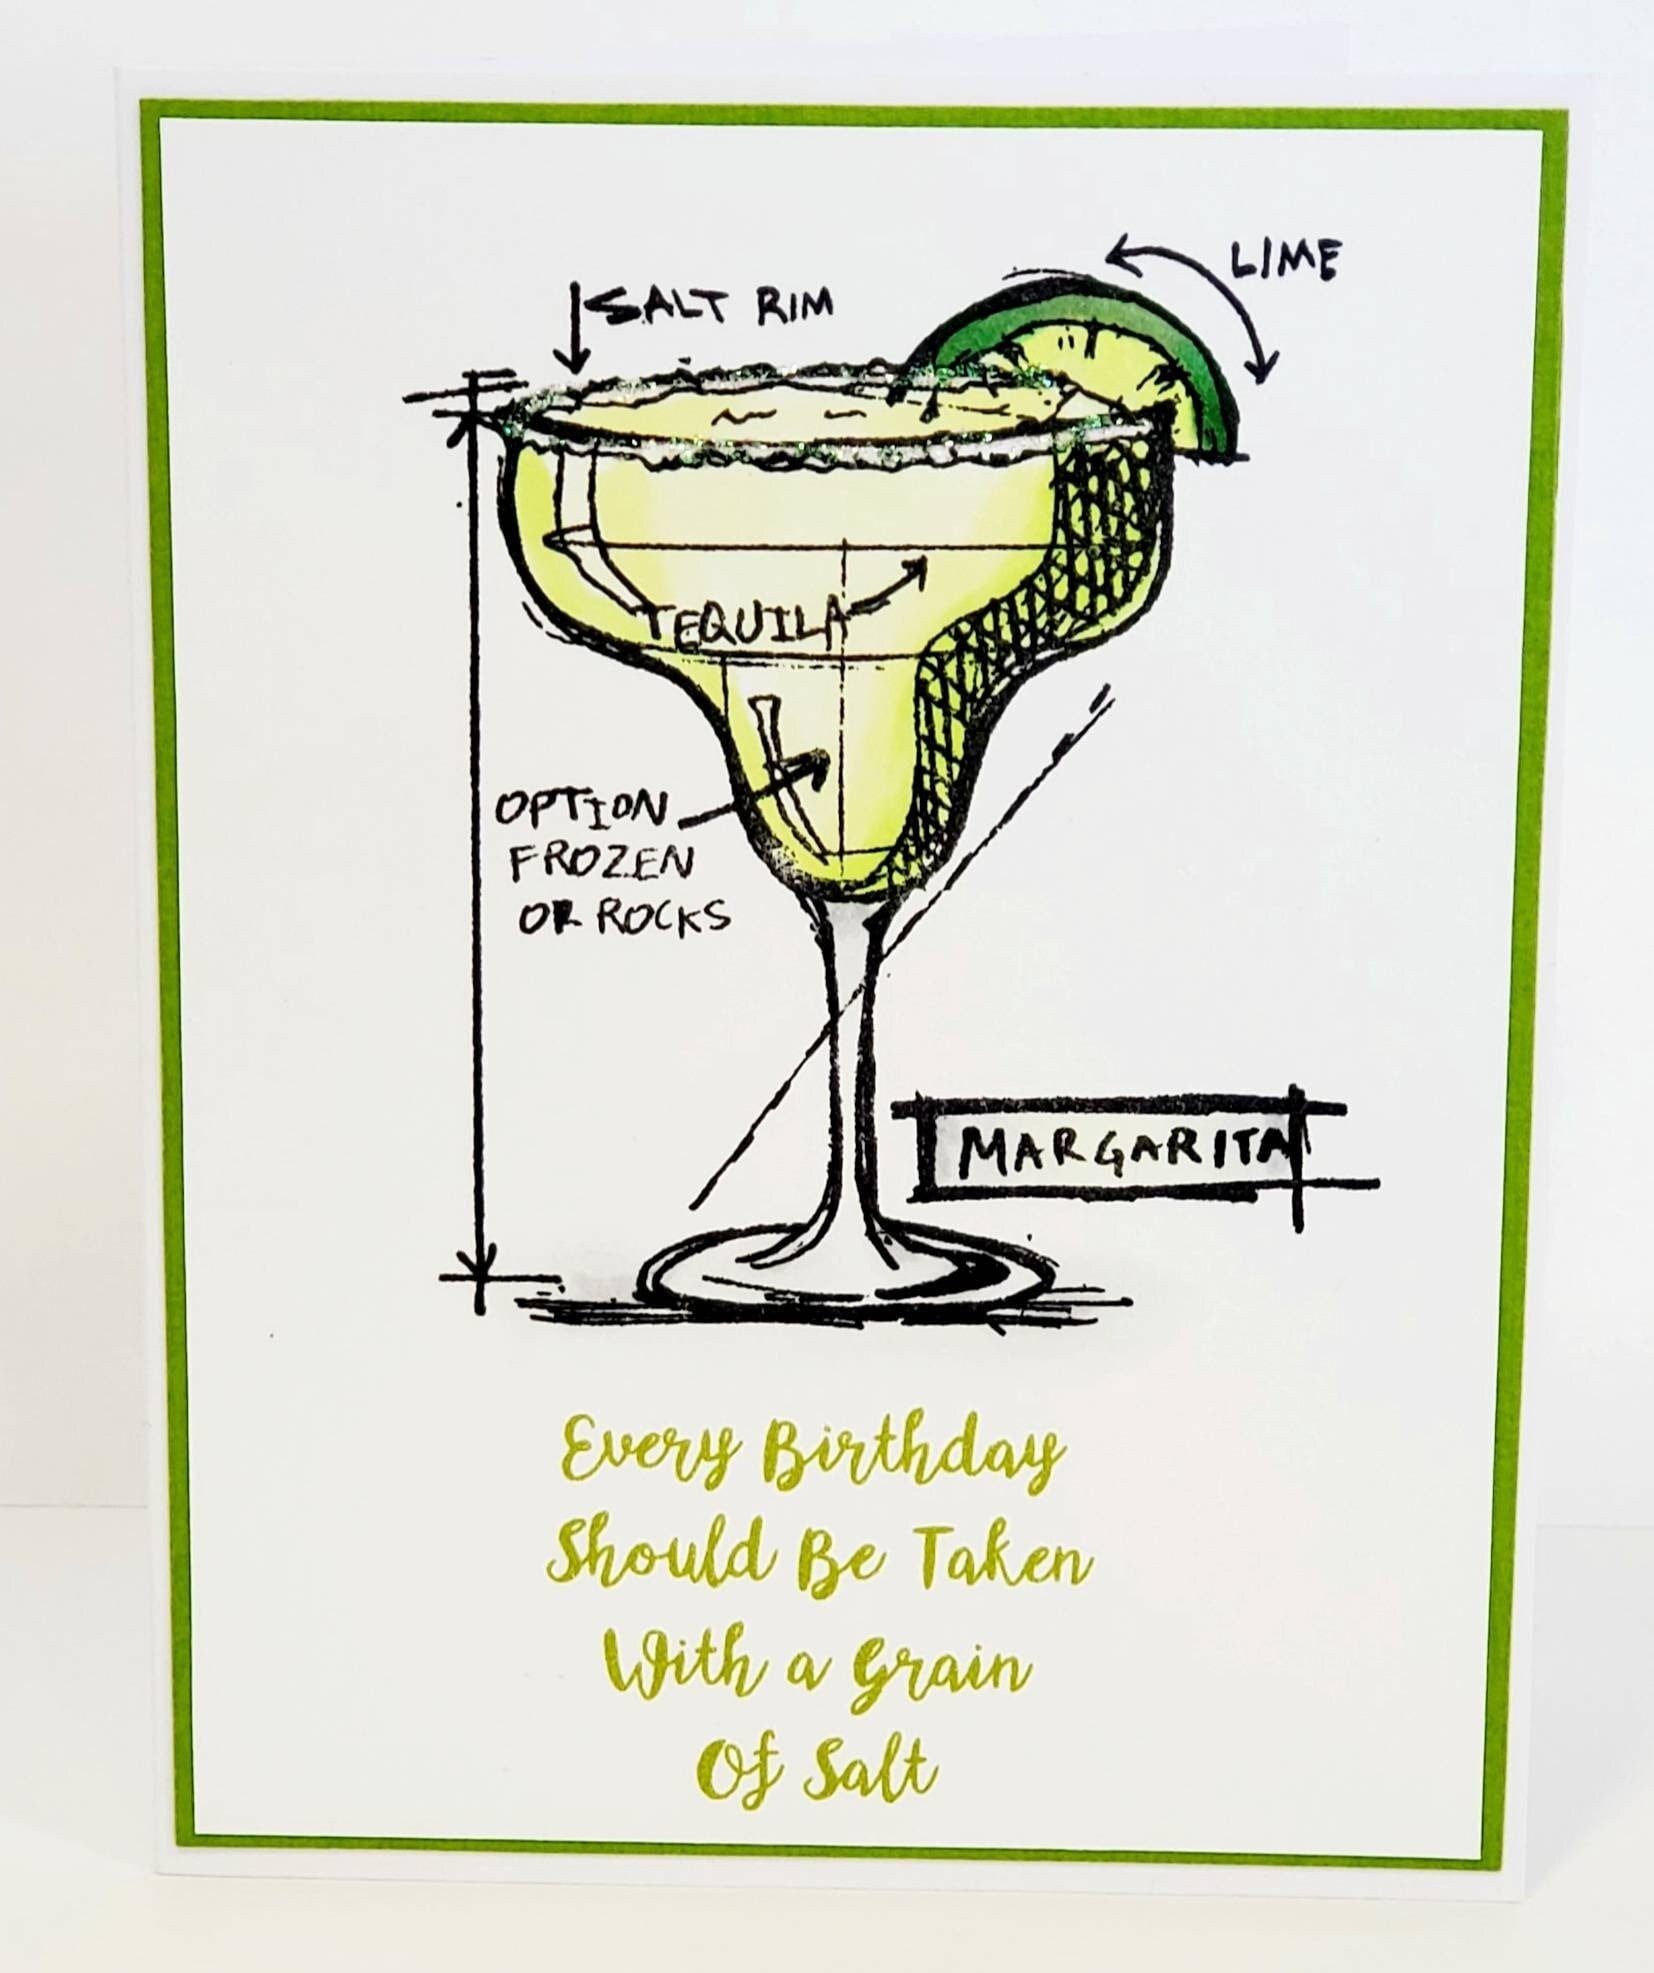 LIME
SALT RIM
TEQUILA
OPTION
FROZEN
OR ROCKS
MARGARITA
Every Birthday
Should Be Taken
With a Grain
Of Salt